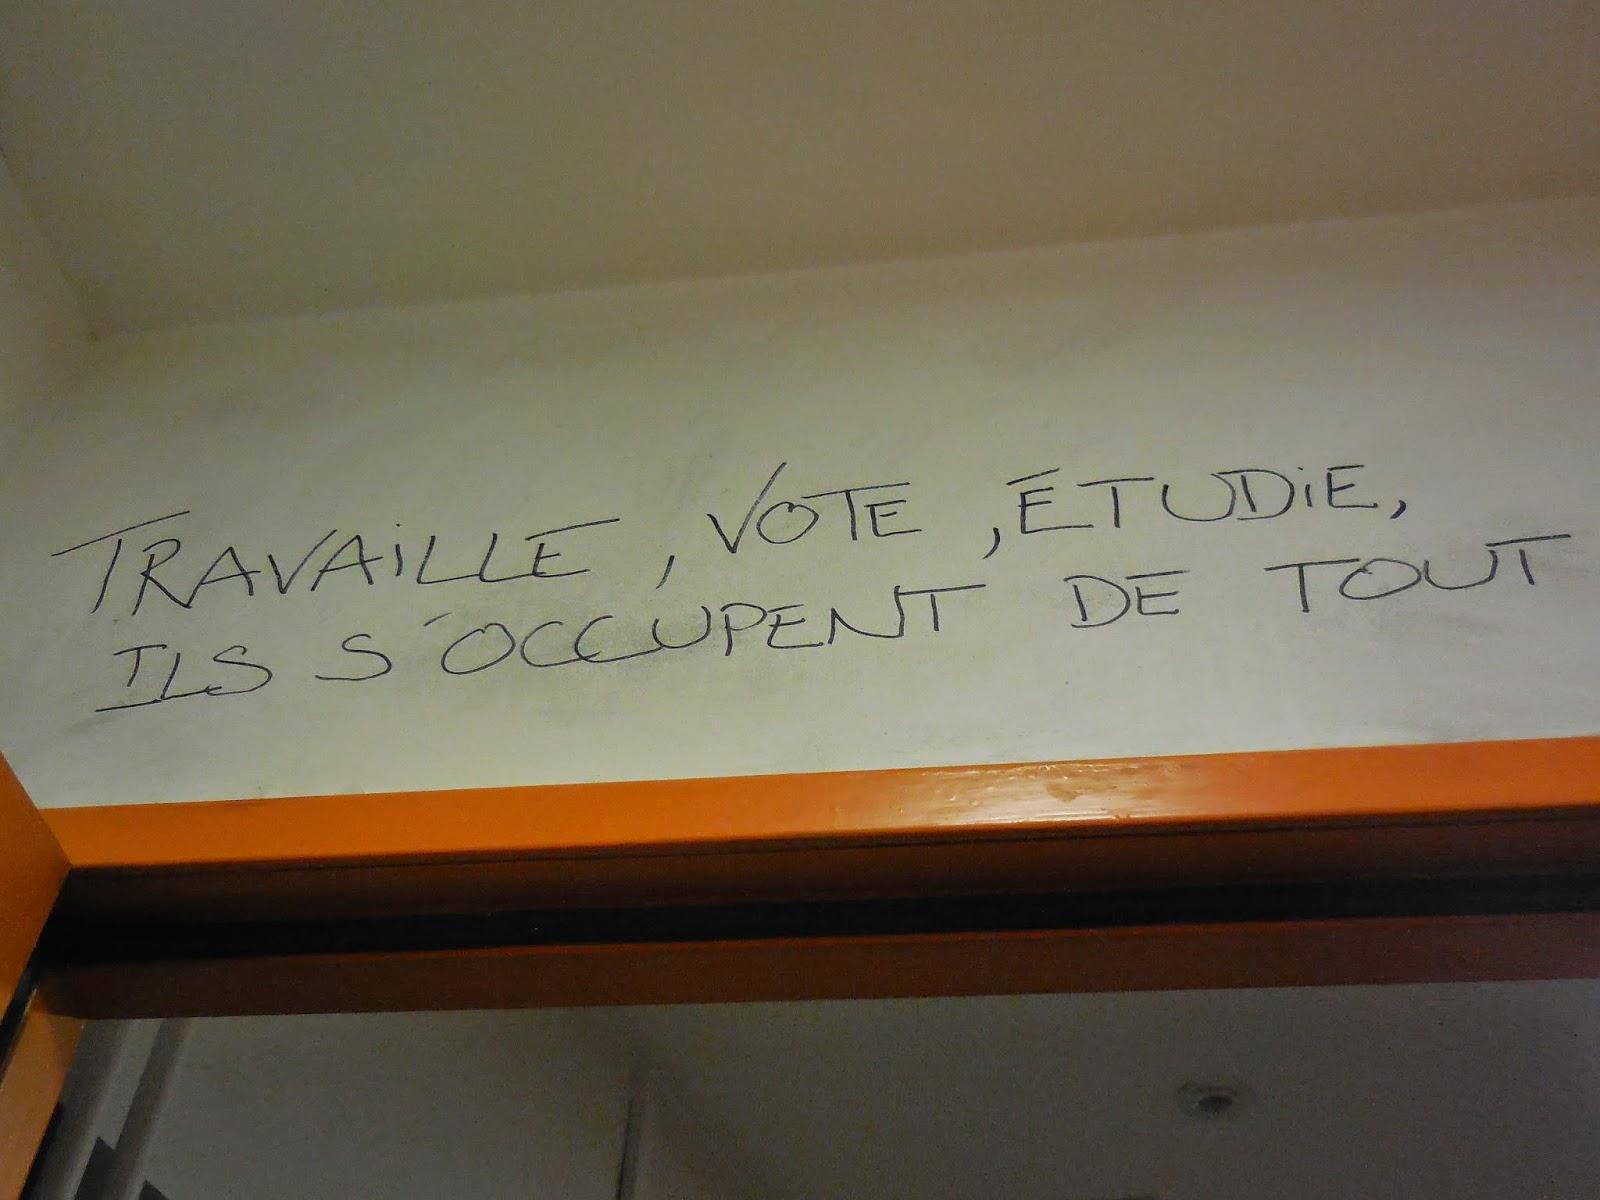 TRAVAiLLE, VOTE, ÉTUDiE,
ILS S'OCCUPENT DE TOUT